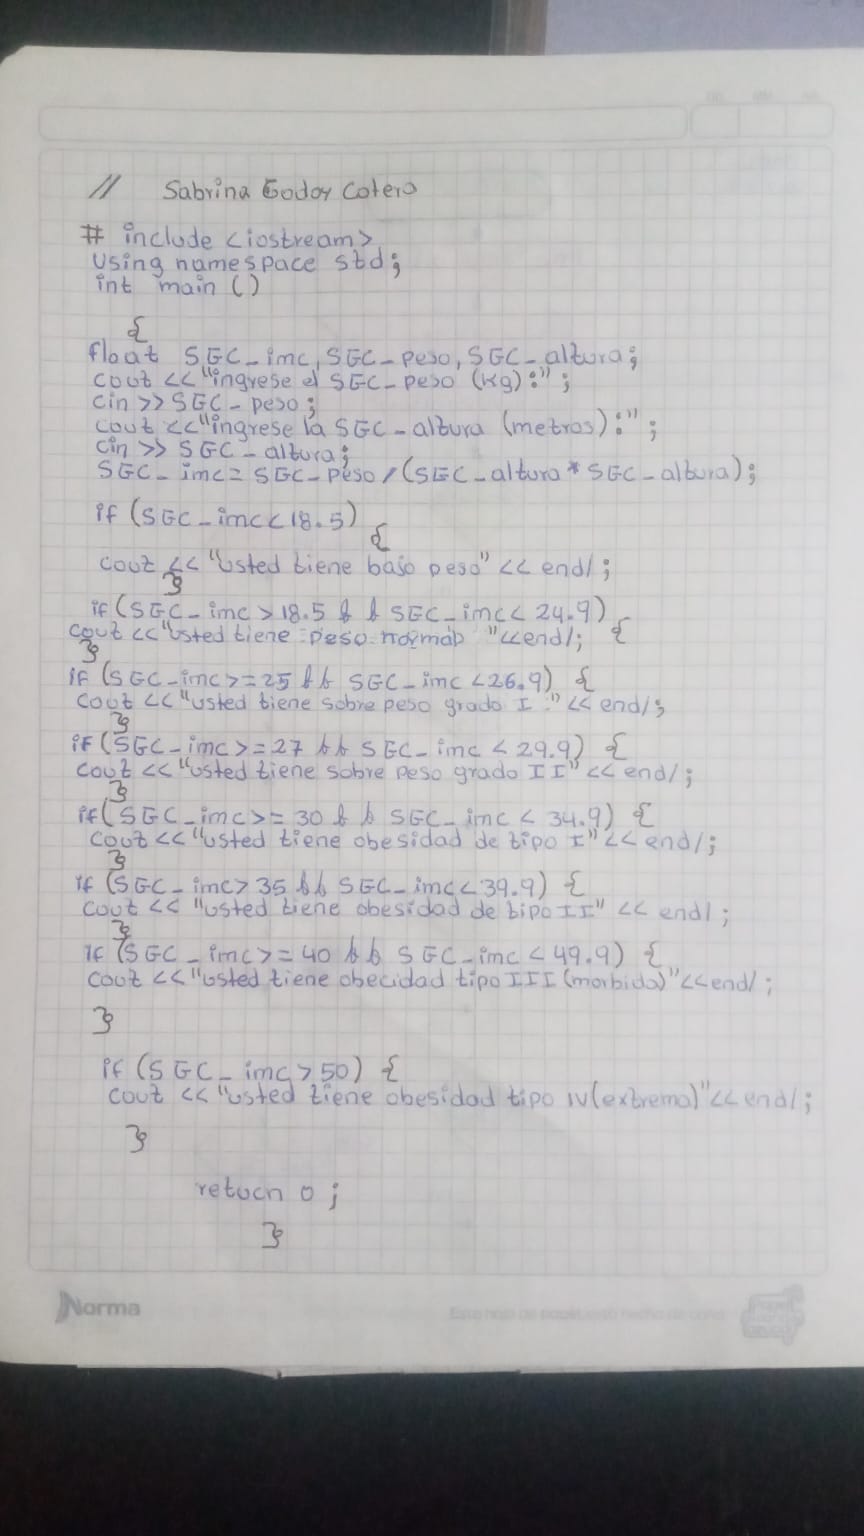 // Sabrina Godoy Cotero
# include <iostream>
using namespace std;
int main ()
{
float SGC_imc, SGC_peso, SGC_altura;
cout <<"ingrese el SGC_peso (kg):";
cin >> SGC_peso;
cout <<"ingrese la SGC_altura (metros):";
cin >> SGC_altura;
SGC_imc= SGC_peso/(SGC_altura*SGC_altura);
if (SGC_imc<18.5)
{
cout << "usted tiene bajo peso" << endl;
}
if(SGC_imc > 18.5 && SGC_imc< 24.9)
{
cout <<"usted tiene peso normal "<<endl;
}
if (SGC_imc>=25 && SGC_imc <26.9) {
cout <<"usted tiene sobre peso grado I "<< endl;
}
if(SGC_imc>=27 && SGC_imc < 29.9) {
cout <<"usted tiene sobre peso grado II"<< endl;
}
if(SGC_imc>= 30 && SGC_imc < 34.9) {
cout <<"usted tiene obesidad de tipo I"<< endl;
}
if (SGC_imc> 35 && SGC_imc<39.9) {
cout << "usted tiene obesidad de tipo II" << endl;
}
if (SGC_imc>=40 && SGC_imc < 49.9) {
cout <<"usted tiene obecidad tipo III (morbida)"<<endl;
}
if (SGC_imc>50) {
cout <<"usted tiene obesidad tipo IV(extrema)"<<endl;
}
return 0;
}
Norma